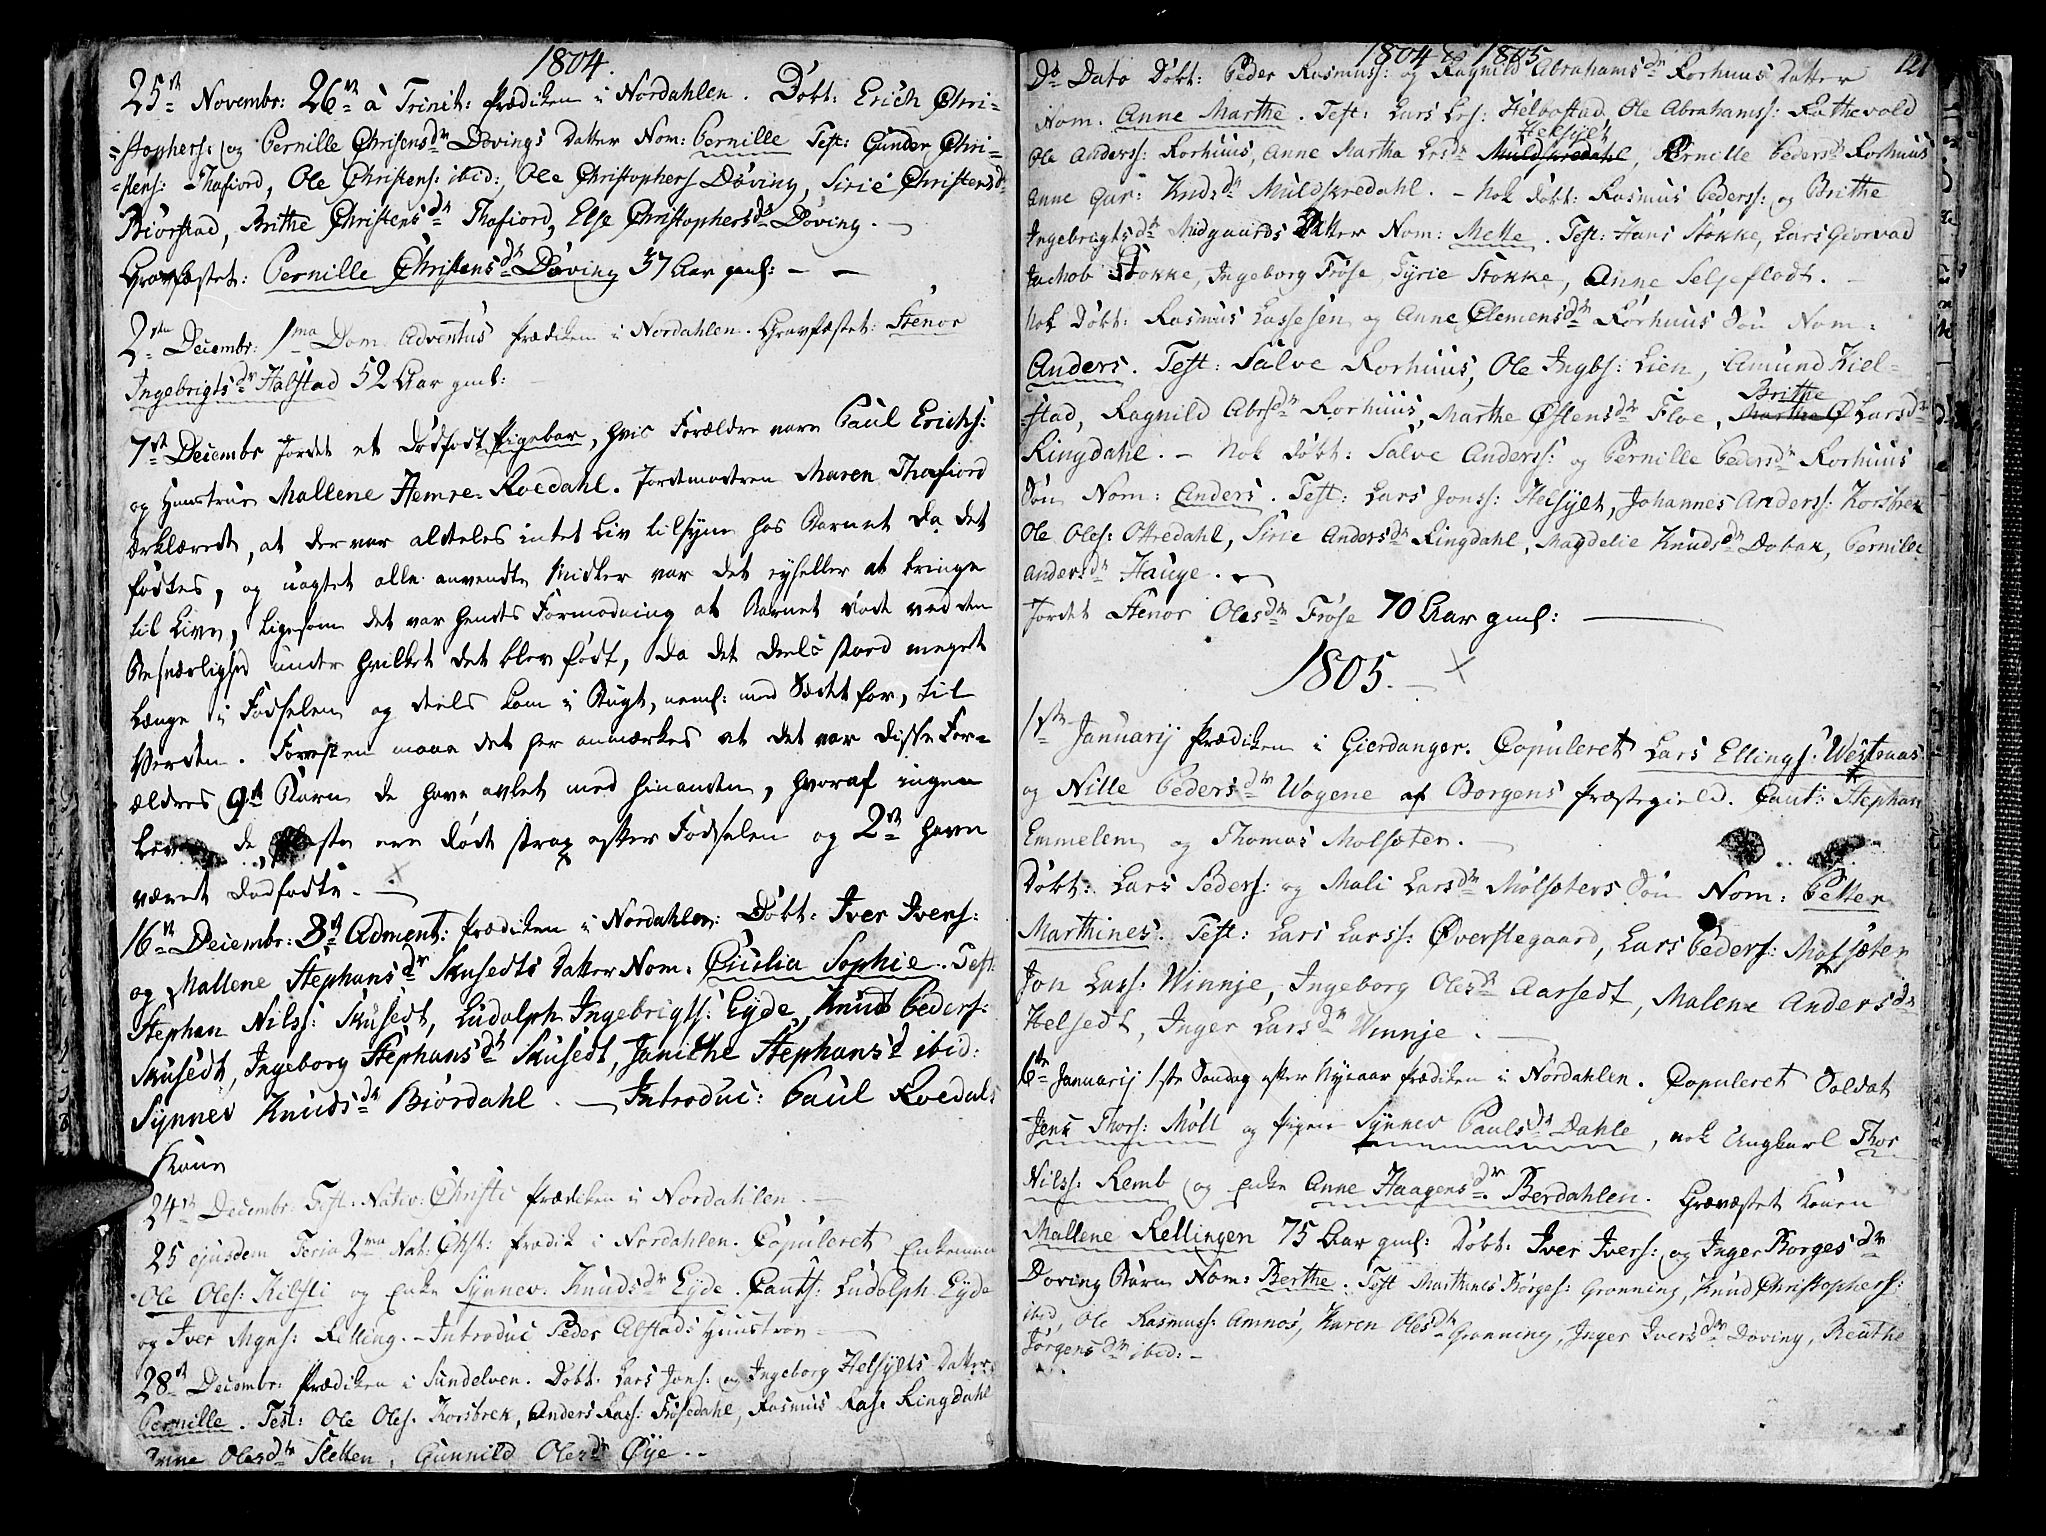 1804.
25de Novembr: 26de à Trinit: Prædiken i Nordahlen. Døbt: Erich Chri-
=stophers: og Pernille Chrisensdr Døvings Datter Nom: Pernille Test: Gunder Chri-
=stens: Thafiord, Ole Christens: ibid:, Ole Christophers Døving, Sirie Christensdr
Biørstad, Brithe Christensdr Thafiord, Else Christophersdr Døving. —
Gravfæstet: Pernille Christensdr Døving 37 Aar gml: — —
2den Decembr: 1ma Dom. Adventus Prædiken i Nordahlen. Gravfæstet: Stenor
Ingebrigtsdr Halstad 52 Aar gml: —
7de Decembr Jordet et Dødfødt Pigebar, hvis Forældre vare Paul Erichs:
og Hustrue Mallene Hemre Roedahl. Jordmoderen Maren Thafiord
erklærede, at der var aldeles intet Liv tilsyne hos Barnet da det
fødtes, og uagtet alle anvendte Midler var det ey heller at bringe
til Live, ligesom det var hendes Formodning at Barnet døde ved den
Besværlighed under hvilket det blev født, da det deels stoed meget
længe i Fødselen og deels kom i Bugt, neml: med Sædet for, til
Verden. Forresten maae det her anmærkes at det var disse For-
ældres 9de Barn de have avlet med hinanden, hvoraf ingen
de ere død strax efter Fødselen og 2de have
været dødfødte. —
16de Decembr: 3de Adment: Prædiken i Nordahlen: Døbt: Iver Ivers:
og Mallene Stephansdr Skusedts Datter Nom: Cicilia Sophie. Test:
Stephan Nilss: Skusedt, Ludolph Ingebrigts: Eyde, Knud Peders:
Skusedt, Ingeborg Stephansdr Skusedt, Janithe Stephansd ibid:
Synnev Knudsdr Biørdahl. — Introduc: Paul Roedals
Kone
24de Decembr: Fest. Nativ: Christi Prædiken i Nordahlen —
25 ejusdem Feria 2ma Nat: Chst: Prædik i Nordahlen. Copuleret Enkemand
Ole Oles: Kilsti og Enke Synnev Knudsdr Eyde. Caut: Ludolph Eyde
og Iver Mgns: Relling. — Introduc Peder Alstads Hustroe —
28de Decembr: Prædiken i Sundelven. Døbt: Lars Jons: og Ingeborg Helsylts Datter
Pernille. Test: Ole Oles. Korsbrek, Anders Rass: Frøsedahl, Rasmus Ras: Ringdahl
Anne Olesdtr Sletten, Gunnild Olesdr Øye. —
1804 & 1805
121
Do Dato Døbt: Peder Rasmuss: og Ragnild Abrahamsdr Rorhuus Datter
Nom. Anne Marthe. Test: Lars Lrs: Helbostad, Ole Abrahamss: Rathevold
Helsylt
Ole Anderss: Rorhuus, Anne Martha Lrsdr Muldskredahl, Pernille Pedersdr Rorhuus
Anne Gur: Knudsdr Muldskredahl. — Nok Døbt: Rasmus Pederss: og Brithe
Ingebrigtsdr Midgaards Datter Nom: Mette. Test: Hans Stokke, Lars Giorvad
Jachob Stokke, Ingeborg Frøse, Syrie Stokke, Anne Selseflodt. —
Nok Døbt: Rasmus Lassesen og Anne Clemensdr Rorhuus Søn Nom:
Anders. Test: Salve Rorhuus, Ole Ingbs: Lien, Amund Kiel-
Brithe
=stad, Ragnild Abrsdr Rorhuus, Marthe Østensdr Floe, Marthe Ø Larsdr
Ringdahl. — Nok Døbt: Salve Anderss: og Pernille Pedersdr Rorhuus
Søn Nom: Anders. Test: Lars Jonss: Helsylt, Johannes Anderss: Korsbrek
Ole Oles: Ottredahl, Sirie Andersdr Ringdahl, Magdelie Knudsdr Dobak, Pernille
Andersdr Hauge. —
Jordet Stenor Olesdr Frøse 70 Aar gml: —
1805. —
1ste Januarij Prædiken i Gierdanger. Copuleret Lars Ellings: Westraas
og Nille Pedersdr Wogene af Borgens Præstegield. Caut: Stephan
Emmelem og Thomas Molsæter. —
Døbt: Lars Peders: og Mali Larsdr Molsæters Søn Nom: Petter
Marthines. Test: Lars Larss: Øverstegaard, Lars Peders: Molsæter
Jon Larss: Winnje, Ingeborg Olesdr Aarsedt, Malene Andersdr
Helsedt, Inger Larsdr Winnje. —
6te Januarij 1ste Søndag efter Nyeaar Prædiken i Nordahlen. Copuleret Soldat
Jens Thors: Moll og Pigen Synnev Paulsdr Dahle, nok Ungkarl Thor
Nilss: Remb og Enke Anne Haagensdr. Berdahlen. Gravæstet Konen
Mallene Rellingen 75 Aar gml: Døbt: Iver Ivers: og Inger Børgesdr
Døving Barn Nom: Berthe. Test Marthines Børges: Grønning, Knud Christophers:
ibid, Ole Rasmuss: Amnos, Karen Olesdr Grønning, Inger Iversdr Døving, Reuthe
Jørgensdr ibid: —